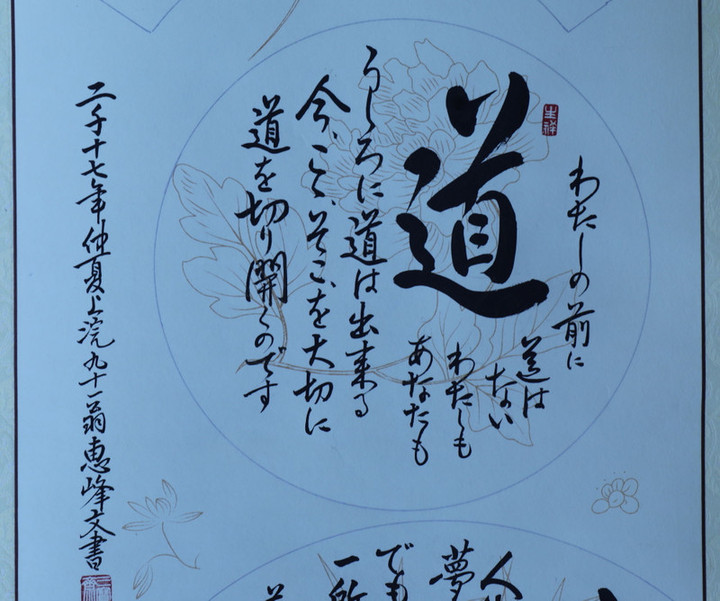 道
わたしの前に
道は
ない
わたしも
あなたも
うしろに道は出来る
今、ここ、そこを大切に
道を切り開くのです
二千十七年仲夏上浣九十一翁恵峰文書
人
夢
でも
一所